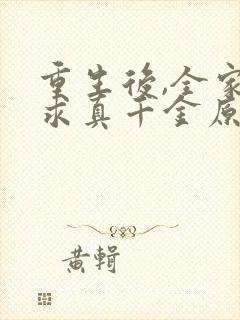 重生後,全家
求真千金原
黃輯